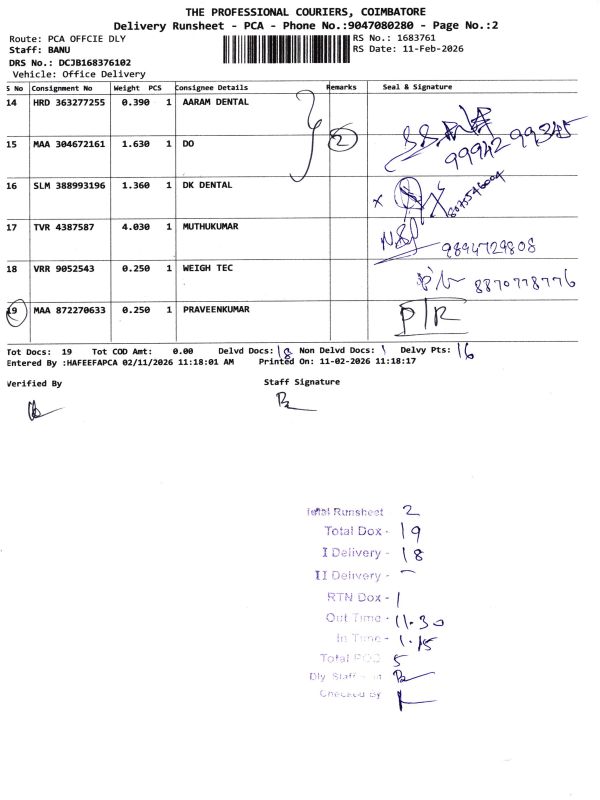 THE PROFESSIONAL COURIERS, COIMBATORE
Delivery Runsheet - PCA - Phone No.:9047080280 - Page No.:2
Route: PCA OFFCIE DLY
RS No.: 1683761
Staff: BANU
RS Date: 11-Feb-2026
DRS No.: DCJB168376102
Vehicle: Office Delivery
S No Consignment No Weight PCS Consignee Details Remarks Seal & Signature
14 HRD 363277255 0.390 1 AARAM DENTAL
15 MAA 304672161 1.630 1 DO 2 9994299345
16 SLM 388993196 1.360 1 DK DENTAL x
17 TVR 4387587 4.030 1 MUTHUKUMAR 9894729808
18 VRR 9052543 0.250 1 WEIGH TEC 8870778776
19 MAA 872270633 0.250 1 PRAVEENKUMAR P/R
Tot Docs: 19 Tot COD Amt: 0.00 Delvd Docs: 18 Non Delvd Docs: 1 Delvy Pts: 16
Entered By :HAFEEFAPCA 02/11/2026 11:18:01 AM Printed On: 11-02-2026 11:18:17
Verified By Staff Signature
Total Runsheet 2
Total Dox - 19
I Delivery - 18
II Delivery - –
RTN Dox - 1
Out Time - 11.30
In Time - 1.15
Total POD 5
Dly Staff
Checked By